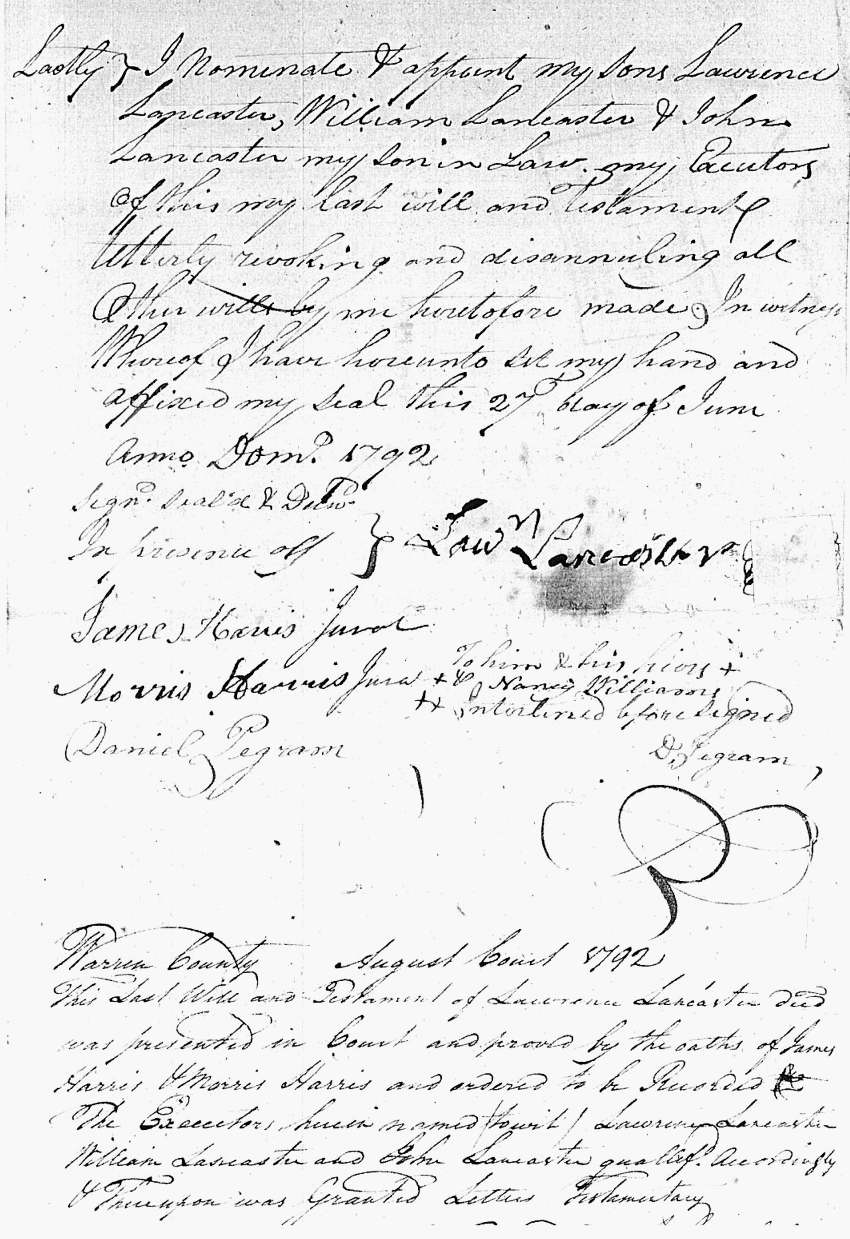 Lastly } I Nominate & appoint my sons Lawrence
Lancaster, William Lancaster & John
Lancaster my son in Law my Executors
of this my last will and Testament
Utterly revoking and disannulling all
Other wills by me heretofore made, In witness
Whereof I have hereunto set my hand and
affixed my seal this 27th day of June
Anno Domo. 1792
Signd. seal'd & Delivd.
In presence off } Lawn Lancaster
James Harris Jurat
Morris Harris Jurat
Daniel Pegram
To him & his heirs +
+ & Nancy Williams
++ Interlined before signed
D. Pegram
Warren County August Court 1792
This Last Will and Testament of Lawrence Lancaster decd
was presented in Court and proved by the oaths of James
Harris & Morris Harris and ordered to be Recorded
The Executors herein named (towit) Lawrence Lancaster
William Lancaster and John Lancaster qualifd. Accordingly
& Thereupon was Granted Letters Testamentary